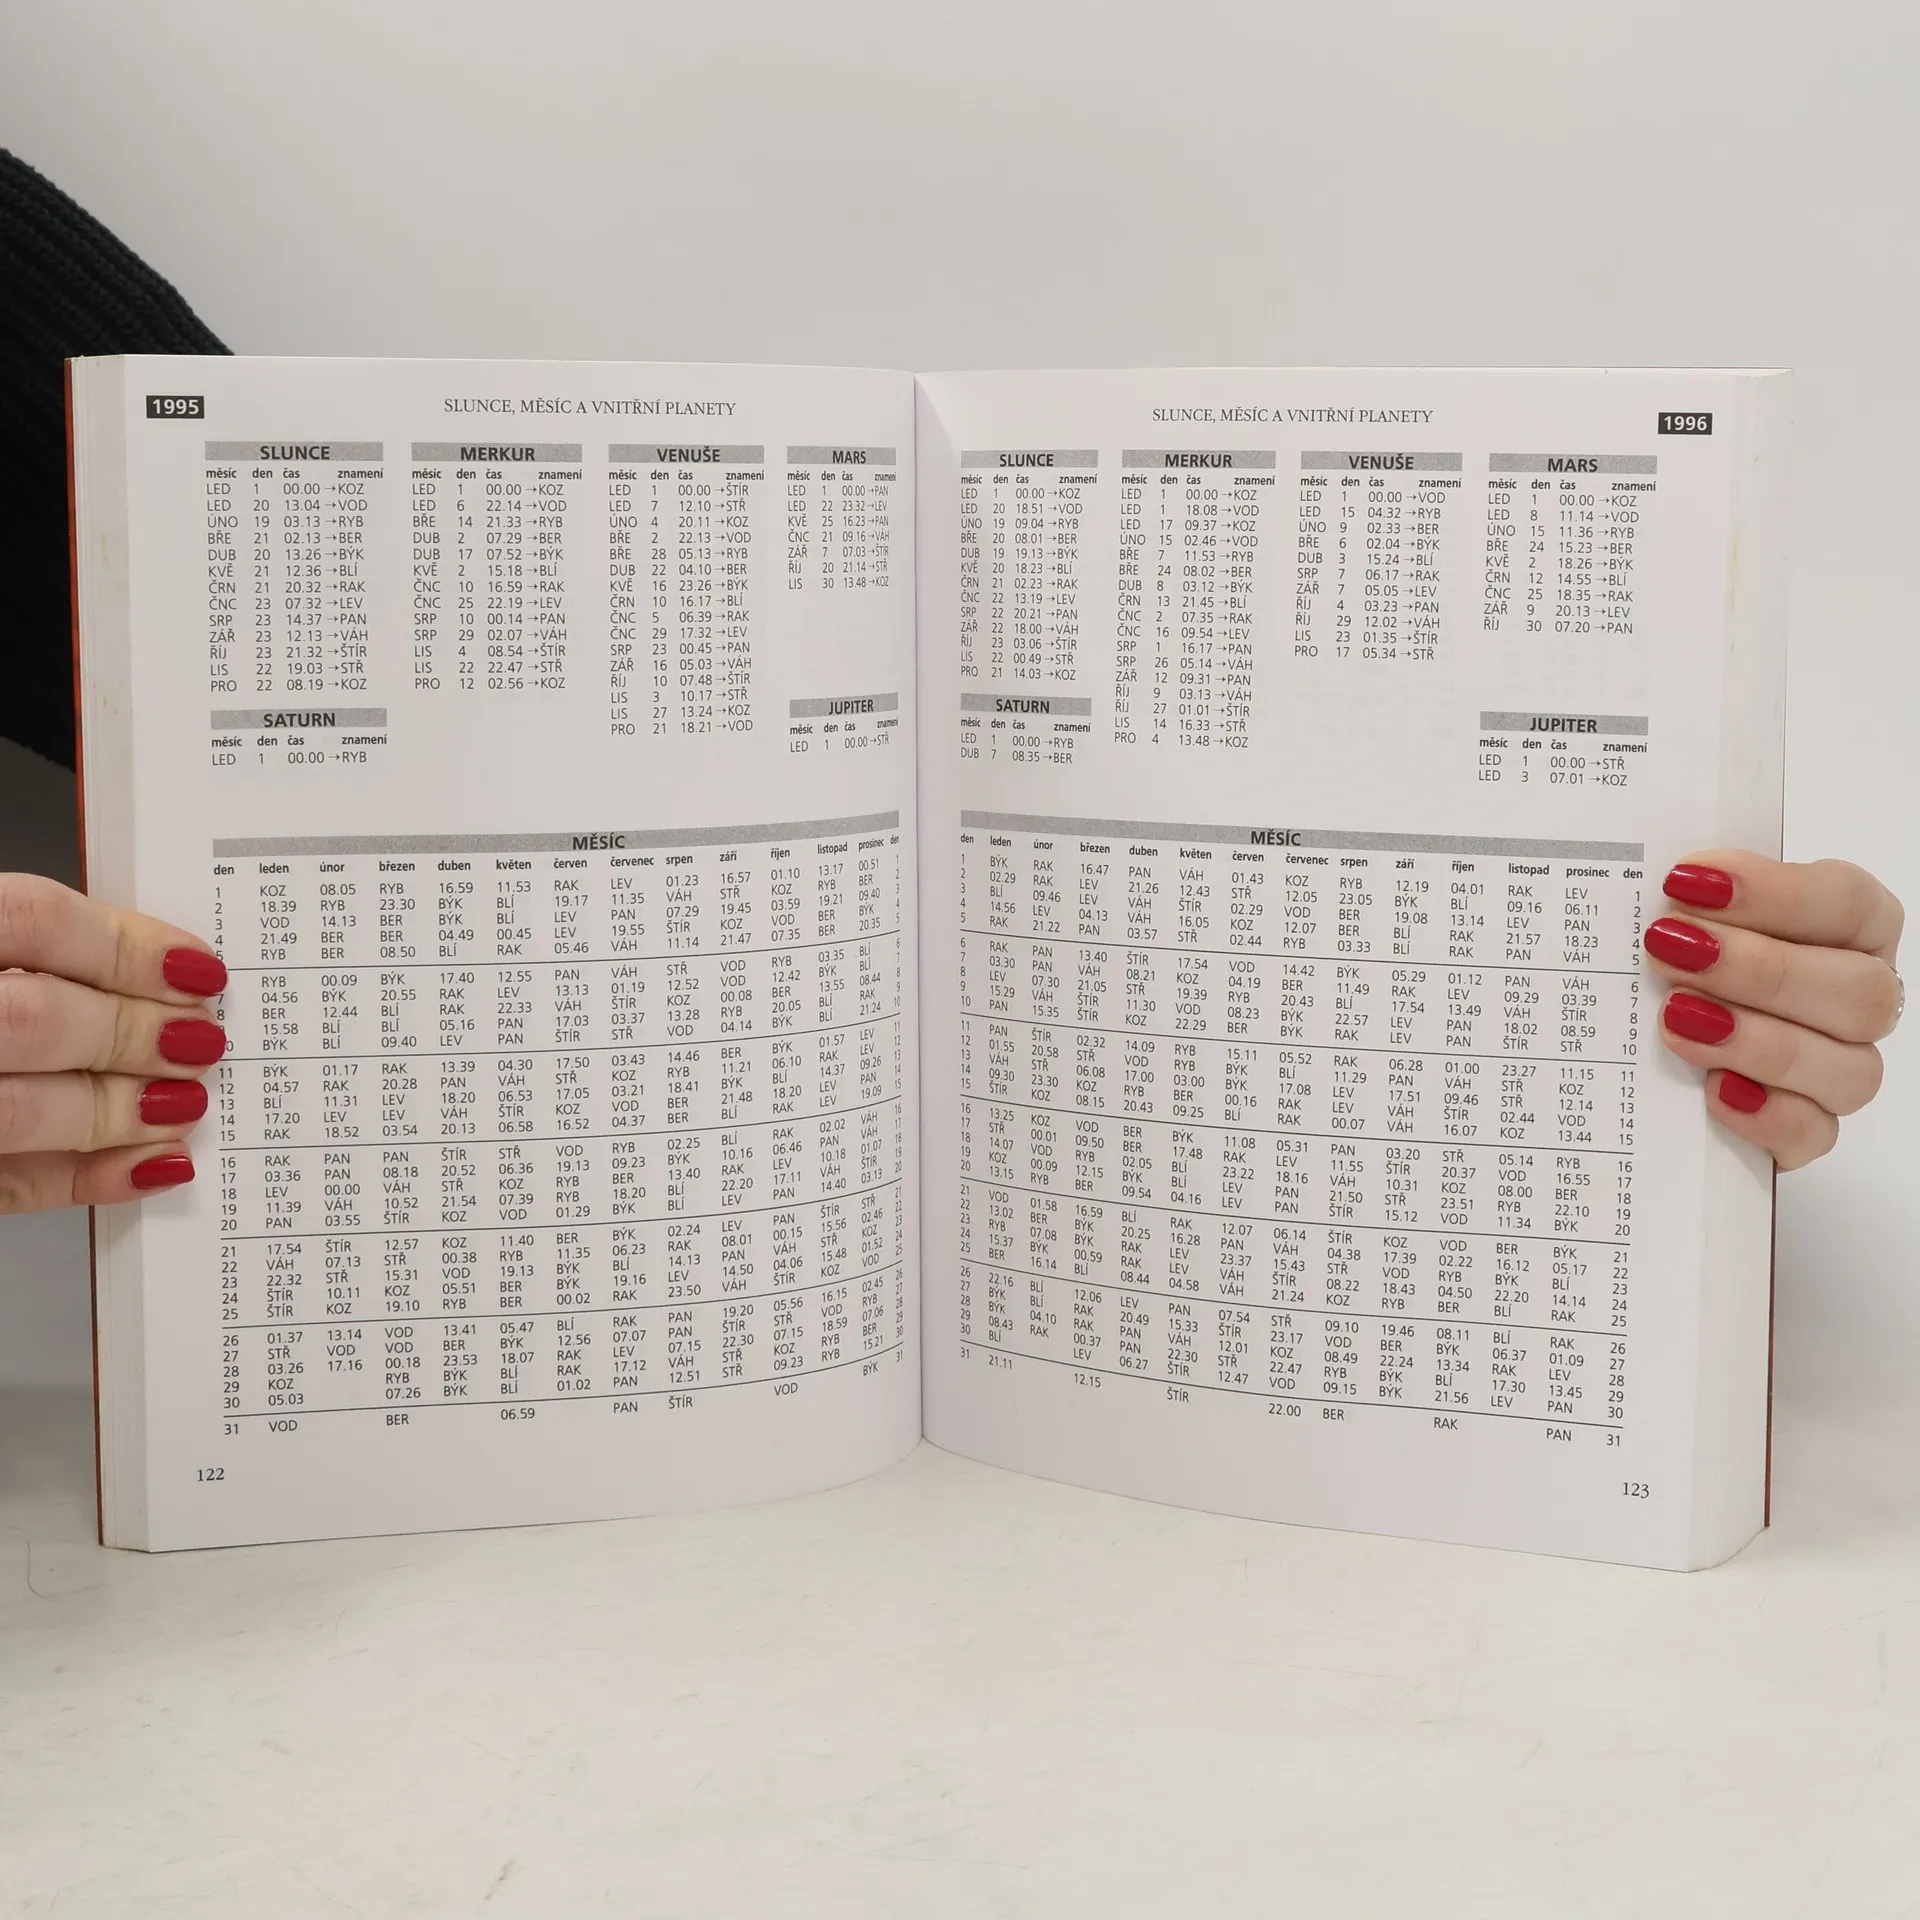 1995
SLUNCE, MĚSÍC A VNITŘNÍ PLANETY
SLUNCE
měsíc den čas znamení
LED 1 00.00 →KOZ
LED 20 13.04 →VOD
ÚNO 19 03.13 →RYB
BŘE 21 02.13 →BER
DUB 20 13.26 →BÝK
KVĚ 21 12.36 →BLÍ
ČRN 21 20.32 →RAK
ČNC 23 07.32 →LEV
SRP 23 14.37 →PAN
ZÁŘ 23 12.13 →VÁH
ŘÍJ 23 21.32 →ŠTÍR
LIS 22 19.03 →STŘ
PRO 22 08.19 →KOZ
SATURN
měsíc den čas znamení
LED 1 00.00 →RYB
MERKUR
měsíc den čas znamení
LED 1 00.00 →KOZ
LED 6 22.14 →VOD
BŘE 14 21.33 →RYB
DUB 2 07.29 →BER
DUB 17 07.52 →BÝK
KVĚ 2 15.18 →BLÍ
ČNC 10 16.59 →RAK
ČNC 25 22.19 →LEV
SRP 10 00.14 →PAN
SRP 29 02.07 →VÁH
LIS 4 08.54 →ŠTÍR
LIS 22 22.47 →STŘ
PRO 12 02.56 →KOZ
VENUŠE
měsíc den čas znamení
LED 1 00.00 →ŠTÍR
LED 7 12.10 →STŘ
ÚNO 4 20.11 →KOZ
BŘE 2 22.13 →VOD
BŘE 28 05.13 →RYB
DUB 22 04.10 →BER
KVĚ 16 23.26 →BÝK
ČRN 10 16.17 →BLÍ
ČNC 5 06.39 →RAK
ČNC 29 17.32 →LEV
SRP 23 00.45 →PAN
ZÁŘ 16 05.03 →VÁH
ŘÍJ 10 07.48 →ŠTÍR
LIS 3 10.17 →STŘ
LIS 27 13.24 →KOZ
PRO 21 18.21 →VOD
MARS
měsíc den čas znamení
LED 1 00.00 →PAN
LED 22 23.32 →LEV
KVĚ 25 16.23 →PAN
ČNC 21 09.16 →VÁH
ZÁŘ 7 07.03 →ŠTÍR
ŘÍJ 20 21.14 →STŘ
LIS 30 13.48 →KOZ
JUPITER
měsíc den čas znamení
LED 1 00.00 →STŘ
MĚSÍC
den leden únor březen duben květen červen červenec srpen září říjen listopad prosinec den
1 KOZ 08.05 RYB 16.59 11.53 RAK LEV 01.23 16.57 01.10 13.17 00.51 1
2 18.39 RYB 23.30 BÝK BLÍ 19.17 11.35 VÁH STŘ KOZ RYB BER 2
3 VOD 14.13 BER BÝK BLÍ LEV PAN 07.29 19.45 03.59 19.21 09.40 3
4 21.49 BER BER 04.49 00.45 LEV 19.55 ŠTÍR KOZ VOD BER BÝK 4
5 RYB BER 08.50 BLÍ RAK 05.46 VÁH 11.14 21.47 07.35 BER 20.35 5
RYB 00.09 BÝK 17.40 12.55 PAN VÁH STŘ VOD RYB 03.35 BLÍ 6
7 04.56 BÝK 20.55 RAK LEV 13.13 01.19 12.52 VOD 12.42 BÝK BLÍ 7
8 BER 12.44 BLÍ RAK 22.33 VÁH ŠTÍR KOZ 00.08 BER 13.55 08.44 8
15.58 BLÍ BLÍ 05.16 PAN 17.03 03.37 13.28 RYB 20.05 BLÍ RAK 9
0 BÝK BLÍ 09.40 LEV PAN ŠTÍR STŘ VOD 04.14 BÝK BLÍ 21.24 10
11 BÝK 01.17 RAK 13.39 04.30 17.50 03.43 14.46 BER BÝK 01.57 LEV 11
12 04.57 RAK 20.28 PAN VÁH STŘ KOZ RYB 11.21 06.10 RAK LEV 12
13 BLÍ 11.31 LEV 18.20 06.53 17.05 03.21 18.41 BÝK BLÍ 14.37 09.26 13
14 17.20 LEV LEV VÁH ŠTÍR KOZ VOD BER 21.48 18.20 LEV PAN 14
15 RAK 18.52 03.54 20.13 06.58 16.52 04.37 BER BLÍ RAK LEV 19.09 15
16 RAK PAN PAN ŠTÍR STŘ VOD RYB 02.25 BLÍ RAK 02.02 VÁH 16
17 03.36 PAN 08.18 20.52 06.36 19.13 09.23 BÝK 10.16 06.46 PAN VÁH 17
18 LEV 00.00 VÁH STŘ KOZ RYB BER 13.40 RAK LEV 10.18 01.07 18
19 11.39 VÁH 10.52 21.54 07.39 RYB 18.20 BLÍ 22.20 17.11 VÁH ŠTÍR 19
20 PAN 03.55 ŠTÍR KOZ VOD 01.29 BÝK BLÍ LEV PAN 14.40 03.13 20
21 17.54 ŠTÍR 12.57 KOZ 11.40 BER BÝK 02.24 LEV PAN ŠTÍR STŘ 21
22 VÁH 07.13 STŘ 00.38 RYB 11.35 06.23 RAK 08.01 00.15 15.56 02.46 22
23 22.32 STŘ 15.31 VOD 19.13 BÝK BLÍ 14.13 PAN VÁH STŘ KOZ 23
24 ŠTÍR 10.11 KOZ 05.51 BER BÝK 19.16 LEV 14.50 04.06 15.48 01.52 24
25 ŠTÍR KOZ 19.10 RYB BER 00.02 RAK 23.50 VÁH ŠTÍR KOZ VOD 25
26 01.37 13.14 VOD 13.41 05.47 BLÍ RAK PAN 19.20 05.56 16.15 02.45 26
27 STŘ VOD VOD BER BÝK 12.56 07.07 PAN ŠTÍR STŘ VOD RYB 27
28 03.26 17.16 00.18 23.53 18.07 RAK LEV 07.15 22.30 07.15 18.59 07.06 28
29 KOZ RYB BÝK BLÍ RAK 17.12 VÁH STŘ KOZ RYB BER 29
30 05.03 07.26 BÝK BLÍ 01.02 PAN 12.51 STŘ 09.23 RYB 15.21 30
31 VOD BER 06.59 PAN ŠTÍR VOD BÝK 31
122
SLUNCE, MĚSÍC A VNITŘNÍ PLANETY
1996
SLUNCE
měsíc den čas znamení
LED 1 00.00 →KOZ
LED 20 18.51 →VOD
ÚNO 19 09.04 →RYB
BŘE 20 08.01 →BER
DUB 19 19.13 →BÝK
KVĚ 20 18.23 →BLÍ
ČRN 21 02.23 →RAK
ČNC 22 13.19 →LEV
SRP 22 20.21 →PAN
ZÁŘ 22 18.00 →VÁH
ŘÍJ 23 03.06 →ŠTÍR
LIS 22 00.49 →STŘ
PRO 21 14.03 →KOZ
SATURN
měsíc den čas znamení
LED 1 00.00 →RYB
DUB 7 08.35 →BER
MERKUR
měsíc den čas znamení
LED 1 00.00 →KOZ
LED 1 18.08 →VOD
LED 17 09.37 →KOZ
ÚNO 15 02.46 →VOD
BŘE 7 11.53 →RYB
BŘE 24 08.02 →BER
DUB 8 03.12 →BÝK
ČRN 13 21.45 →BLÍ
ČNC 2 07.35 →RAK
ČNC 16 09.54 →LEV
SRP 1 16.17 →PAN
SRP 26 05.14 →VÁH
ZÁŘ 12 09.31 →PAN
ŘÍJ 9 03.13 →VÁH
ŘÍJ 27 01.01 →ŠTÍR
LIS 14 16.33 →STŘ
PRO 4 13.48 →KOZ
VENUŠE
měsíc den čas znamení
LED 1 00.00 →VOD
LED 15 04.32 →RYB
ÚNO 9 02.33 →BER
BŘE 6 02.04 →BÝK
DUB 3 15.24 →BLÍ
SRP 7 06.17 →RAK
ZÁŘ 7 05.05 →LEV
ŘÍJ 4 03.23 →PAN
ŘÍJ 29 12.02 →VÁH
LIS 23 01.35 →ŠTÍR
PRO 17 05.34 →STŘ
MARS
měsíc den čas znamení
LED 1 00.00 →KOZ
LED 8 11.14 →VOD
ÚNO 15 11.36 →RYB
BŘE 24 15.23 →BER
KVĚ 2 18.26 →BÝK
ČRN 12 14.55 →BLÍ
ČNC 25 18.35 →RAK
ZÁŘ 9 20.13 →LEV
ŘÍJ 30 07.20 →PAN
JUPITER
měsíc den čas znamení
LED 1 00.00 →STŘ
LED 3 07.01 →KOZ
MĚSÍC
den leden únor březen duben květen červen červenec srpen září říjen listopad prosinec den
1 BÝK RAK 16.47 PAN VÁH 01.43 KOZ RYB 12.19 04.01 RAK LEV 1
2 02.29 RAK LEV 21.26 12.43 STŘ 12.05 23.05 BÝK BLÍ 09.16 06.11 2
3 BLÍ 09.46 LEV VÁH ŠTÍR 02.29 VOD BER 19.08 13.14 LEV PAN 3
4 14.56 LEV 04.13 VÁH 16.05 KOZ 12.07 BER BLÍ RAK 21.57 18.23 4
5 RAK 21.22 PAN 03.57 STŘ 02.44 RYB 03.33 BLÍ RAK PAN VÁH 5
6 RAK PAN 13.40 ŠTÍR 17.54 VOD 14.42 BÝK 05.29 01.12 PAN VÁH 6
7 03.30 PAN VÁH 08.21 KOZ 04.19 BER 11.49 RAK LEV 09.29 03.39 7
8 LEV 07.30 21.05 STŘ 19.39 RYB 20.43 BLÍ 17.54 13.49 VÁH ŠTÍR 8
9 15.29 VÁH ŠTÍR 11.30 VOD 08.23 BÝK 22.57 LEV PAN 18.02 08.59 9
10 PAN 15.35 ŠTÍR KOZ 22.29 BER BÝK RAK LEV PAN ŠTÍR STŘ 10
11 PAN ŠTÍR 02.32 14.09 RYB 15.11 05.52 RAK 06.28 01.00 23.27 11.15 11
12 01.55 20.58 STŘ VOD RYB BÝK BLÍ 11.29 PAN VÁH STŘ KOZ 12
13 VÁH STŘ 06.08 17.00 03.00 BÝK 17.08 LEV 17.51 09.46 STŘ 12.14 13
14 09.30 23.30 KOZ RYB BER 00.16 RAK LEV VÁH ŠTÍR 02.44 VOD 14
15 ŠTÍR KOZ 08.15 20.43 09.25 BLÍ RAK 00.07 VÁH 16.07 KOZ 13.44 15
16 13.25 KOZ VOD BER BÝK 11.08 05.31 PAN 03.20 STŘ 05.14 RYB 16
17 STŘ 00.01 09.50 BER 17.48 RAK LEV 11.55 ŠTÍR 20.37 VOD 16.55 17
18 14.07 VOD RYB 02.05 BLÍ 23.22 18.16 VÁH 10.31 KOZ 08.00 BER 18
19 KOZ 00.09 12.15 BÝK BLÍ LEV PAN 21.50 STŘ 23.51 RYB 22.10 19
20 13.15 RYB BER 09.54 04.16 LEV PAN ŠTÍR 15.12 VOD 11.34 BÝK 20
21 VOD 01.58 16.59 BLÍ RAK 12.07 06.14 ŠTÍR KOZ VOD BER BÝK 21
22 13.02 BER BÝK 20.25 16.28 PAN VÁH 04.38 17.39 02.22 16.12 05.17 22
23 RYB 07.08 BÝK RAK LEV 23.37 15.43 STŘ VOD RYB BÝK BLÍ 23
24 15.37 BÝK 00.59 RAK LEV VÁH ŠTÍR 08.22 18.43 04.50 22.20 14.14 24
25 BER 16.14 BLÍ 08.44 04.58 VÁH 21.24 KOZ RYB BER BLÍ RAK 25
26 22.16 BLÍ 12.06 LEV PAN 07.54 STŘ 09.10 19.46 08.11 BLÍ RAK 26
27 BÝK BLÍ RAK 20.49 15.33 ŠTÍR 23.17 VOD BER BÝK 06.37 01.09 27
28 BÝK 04.10 RAK PAN VÁH 12.01 KOZ 08.49 22.24 13.34 RAK LEV 28
29 08.43 RAK 00.37 PAN 22.30 STŘ 22.47 RYB BÝK BLÍ 17.30 13.45 29
30 BLÍ LEV 06.27 ŠTÍR 12.47 VOD 09.15 BÝK 21.56 LEV PAN 30
31 21.11 12.15 ŠTÍR 22.00 BER RAK PAN 31
123